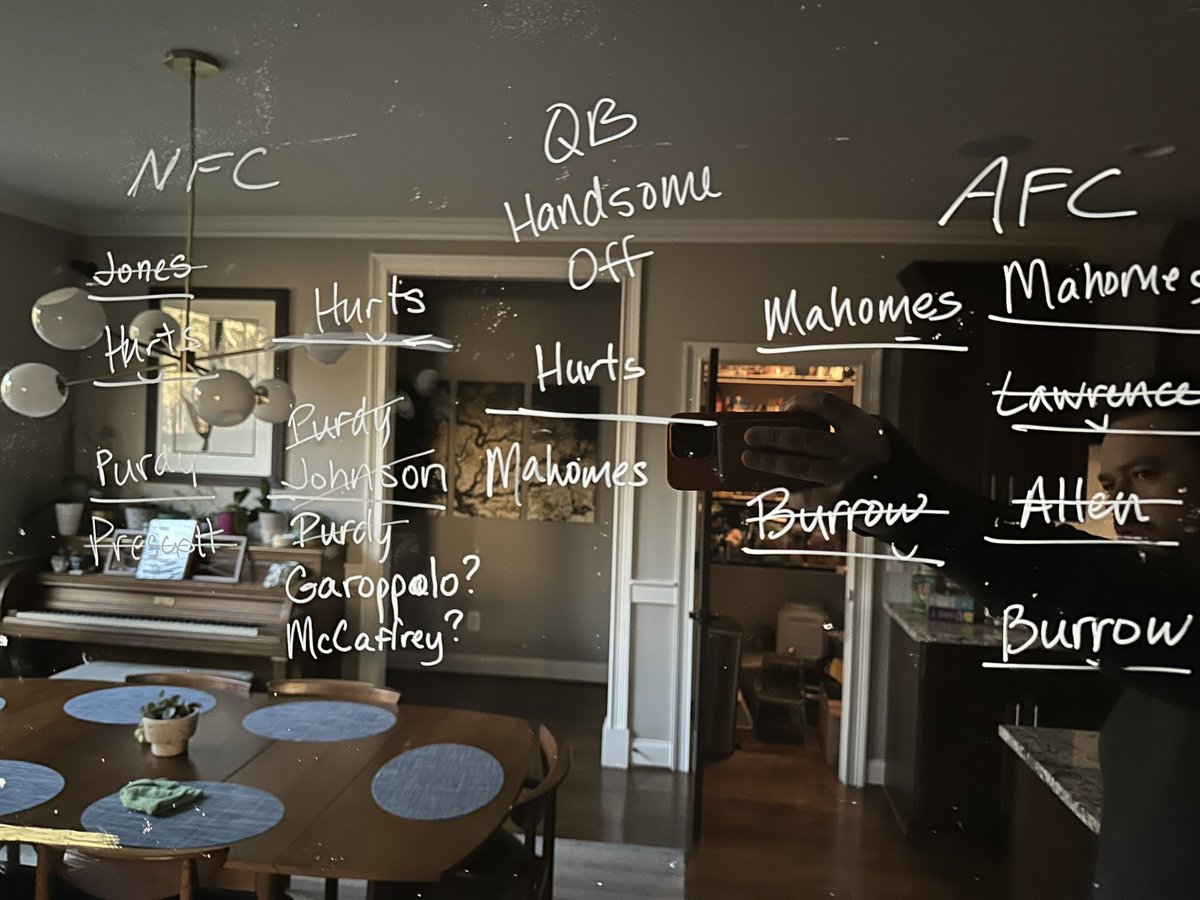 QB
Handsome
Off
NFC
Jones
Hurts
Purdy
Prescott
Hurts
Purdy
Johnson
Purdy
Garoppolo?
McCaffrey?
Hurts
Mahomes
AFC
Mahomes
Burrow
Mahomes
Lawrence
Allen
Burrow